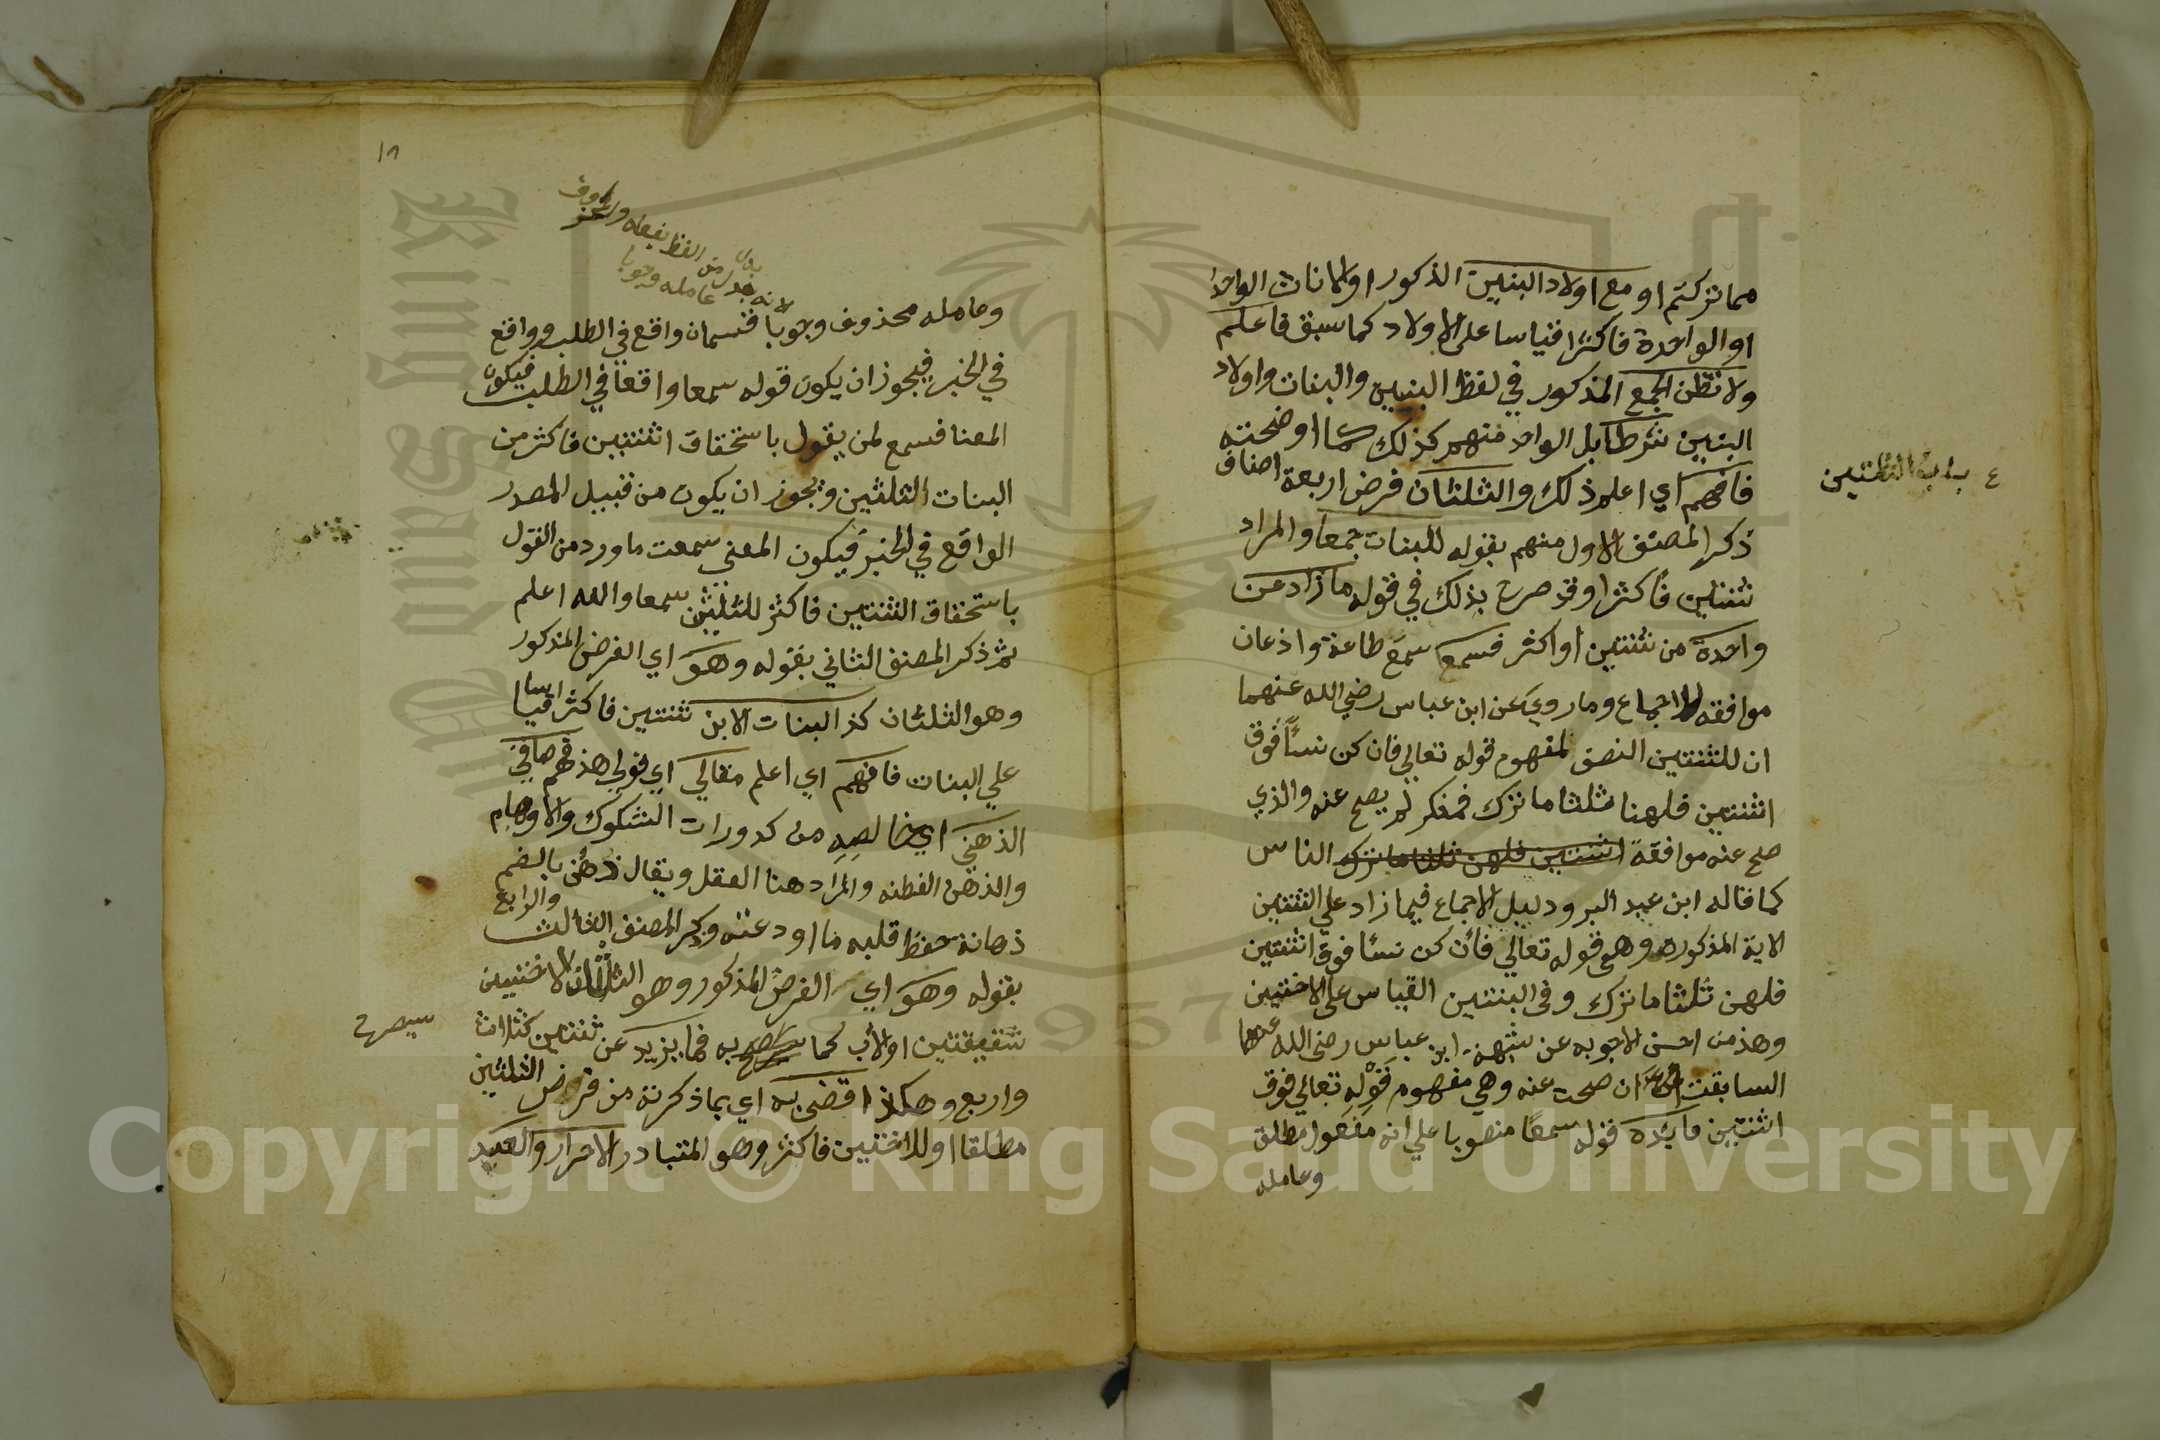 مما تركتم او مع اولاد البنين الذكور او الاناث الواحد
او الواحدة فاكثر اقياسا على الاولاد كما سبق فاعلم
ولا تظن الجمع المذكور في لفظ البنين والبنات واولاد
البنين شرطا بل الواحد منهم كذلك كما اوضحته
فافهم اي اعلم ذلك والثلثان فرض اربعة اصناف
ذكر المصنف الاول منهم بقوله للبنات جمعا والمراد
ثنتين فاكثر وقد صرح بذلك في قوله ما زاد عن
واحدة من ثنتين او اكثر فسمع سمع طاعة واذعان
موافقه للاجماع وما روي عن ابن عباس رضي الله عنهما
ان للثنتين النصف لمفهوم قوله تعالي فان كن نسأ فوق
اثنتين فلهنا ثلثا ما ترك فمنكر لم يصح عنه والذي
صح عنه موافقة اثنتين فلهن ثلثا ما ترك الناس
كما قاله ابن عبد البر ودليل الاجماع فيما زاد علي الثنتين
الاية المذكورة وهي قوله تعالي فأن كن نسأ فوق اثنتين
فلهن ثلثا ما ترك وفي البنتين القياس على الاختين
وهذ من احسن الاجوبه عن شبهة ابن عباس رضي الله عنهما
السابقت ان صحت عنه وهي مفهوم قوله تعالي فوق
اثنتين فائده قوله سمعا منصوبا علي انه مفعول مطلق
وعامله
١٨
لانه بدل من الفظ بفعله والمحذوف
عامله وجوبا
بدل
وعامله محذوف وجوبا قسمان واقع في الطلب وواقع
في الخبر فيجوز ان يكون قوله سمعا واقعا في الطلب فيكون
المعنا فسمع لمن يقول باستحقاق اثنتين فاكثر من
البنات الثلثين ويجوز ان يكون من قبيل المصدر
الواقع في الخبر فيكون المعني سمعت ما ورد من القول
باستحقاق الثنتين فاكثر للثلثين سمعا والله اعلم
ثم ذكر المصنف الثاني بقوله وهو اي الفرض المذكور
وهو الثلثان كذ البنات الابن ثنتين فاكثر اقياسا
علي البنات فافهم اي اعلم مقالي اي قولي هذ فهم صافي
الذهني اي خالصه من كدورات الشكوك والاوهام
والذهن الفطنه والمراد هنا العقل ويقال ذهن بالضم
ذهانة حفظ قلبه ما اودعته وذكر المصنف الثالث والرابع
بقوله وهو اي الفرض المذكور وهو الثلثان للاختين
شقيقتين او لأب كما به فما يزيد عن ثنتين كثلاث
سيصرح
واربع وهكذ اقضى به اي بما ذكرته من فرض الثلثين
مطلقا اوللاختين فاكثر وهو المتبادر الاحرار والعبيد
Copyright © King Saud University
King Saud University
1957